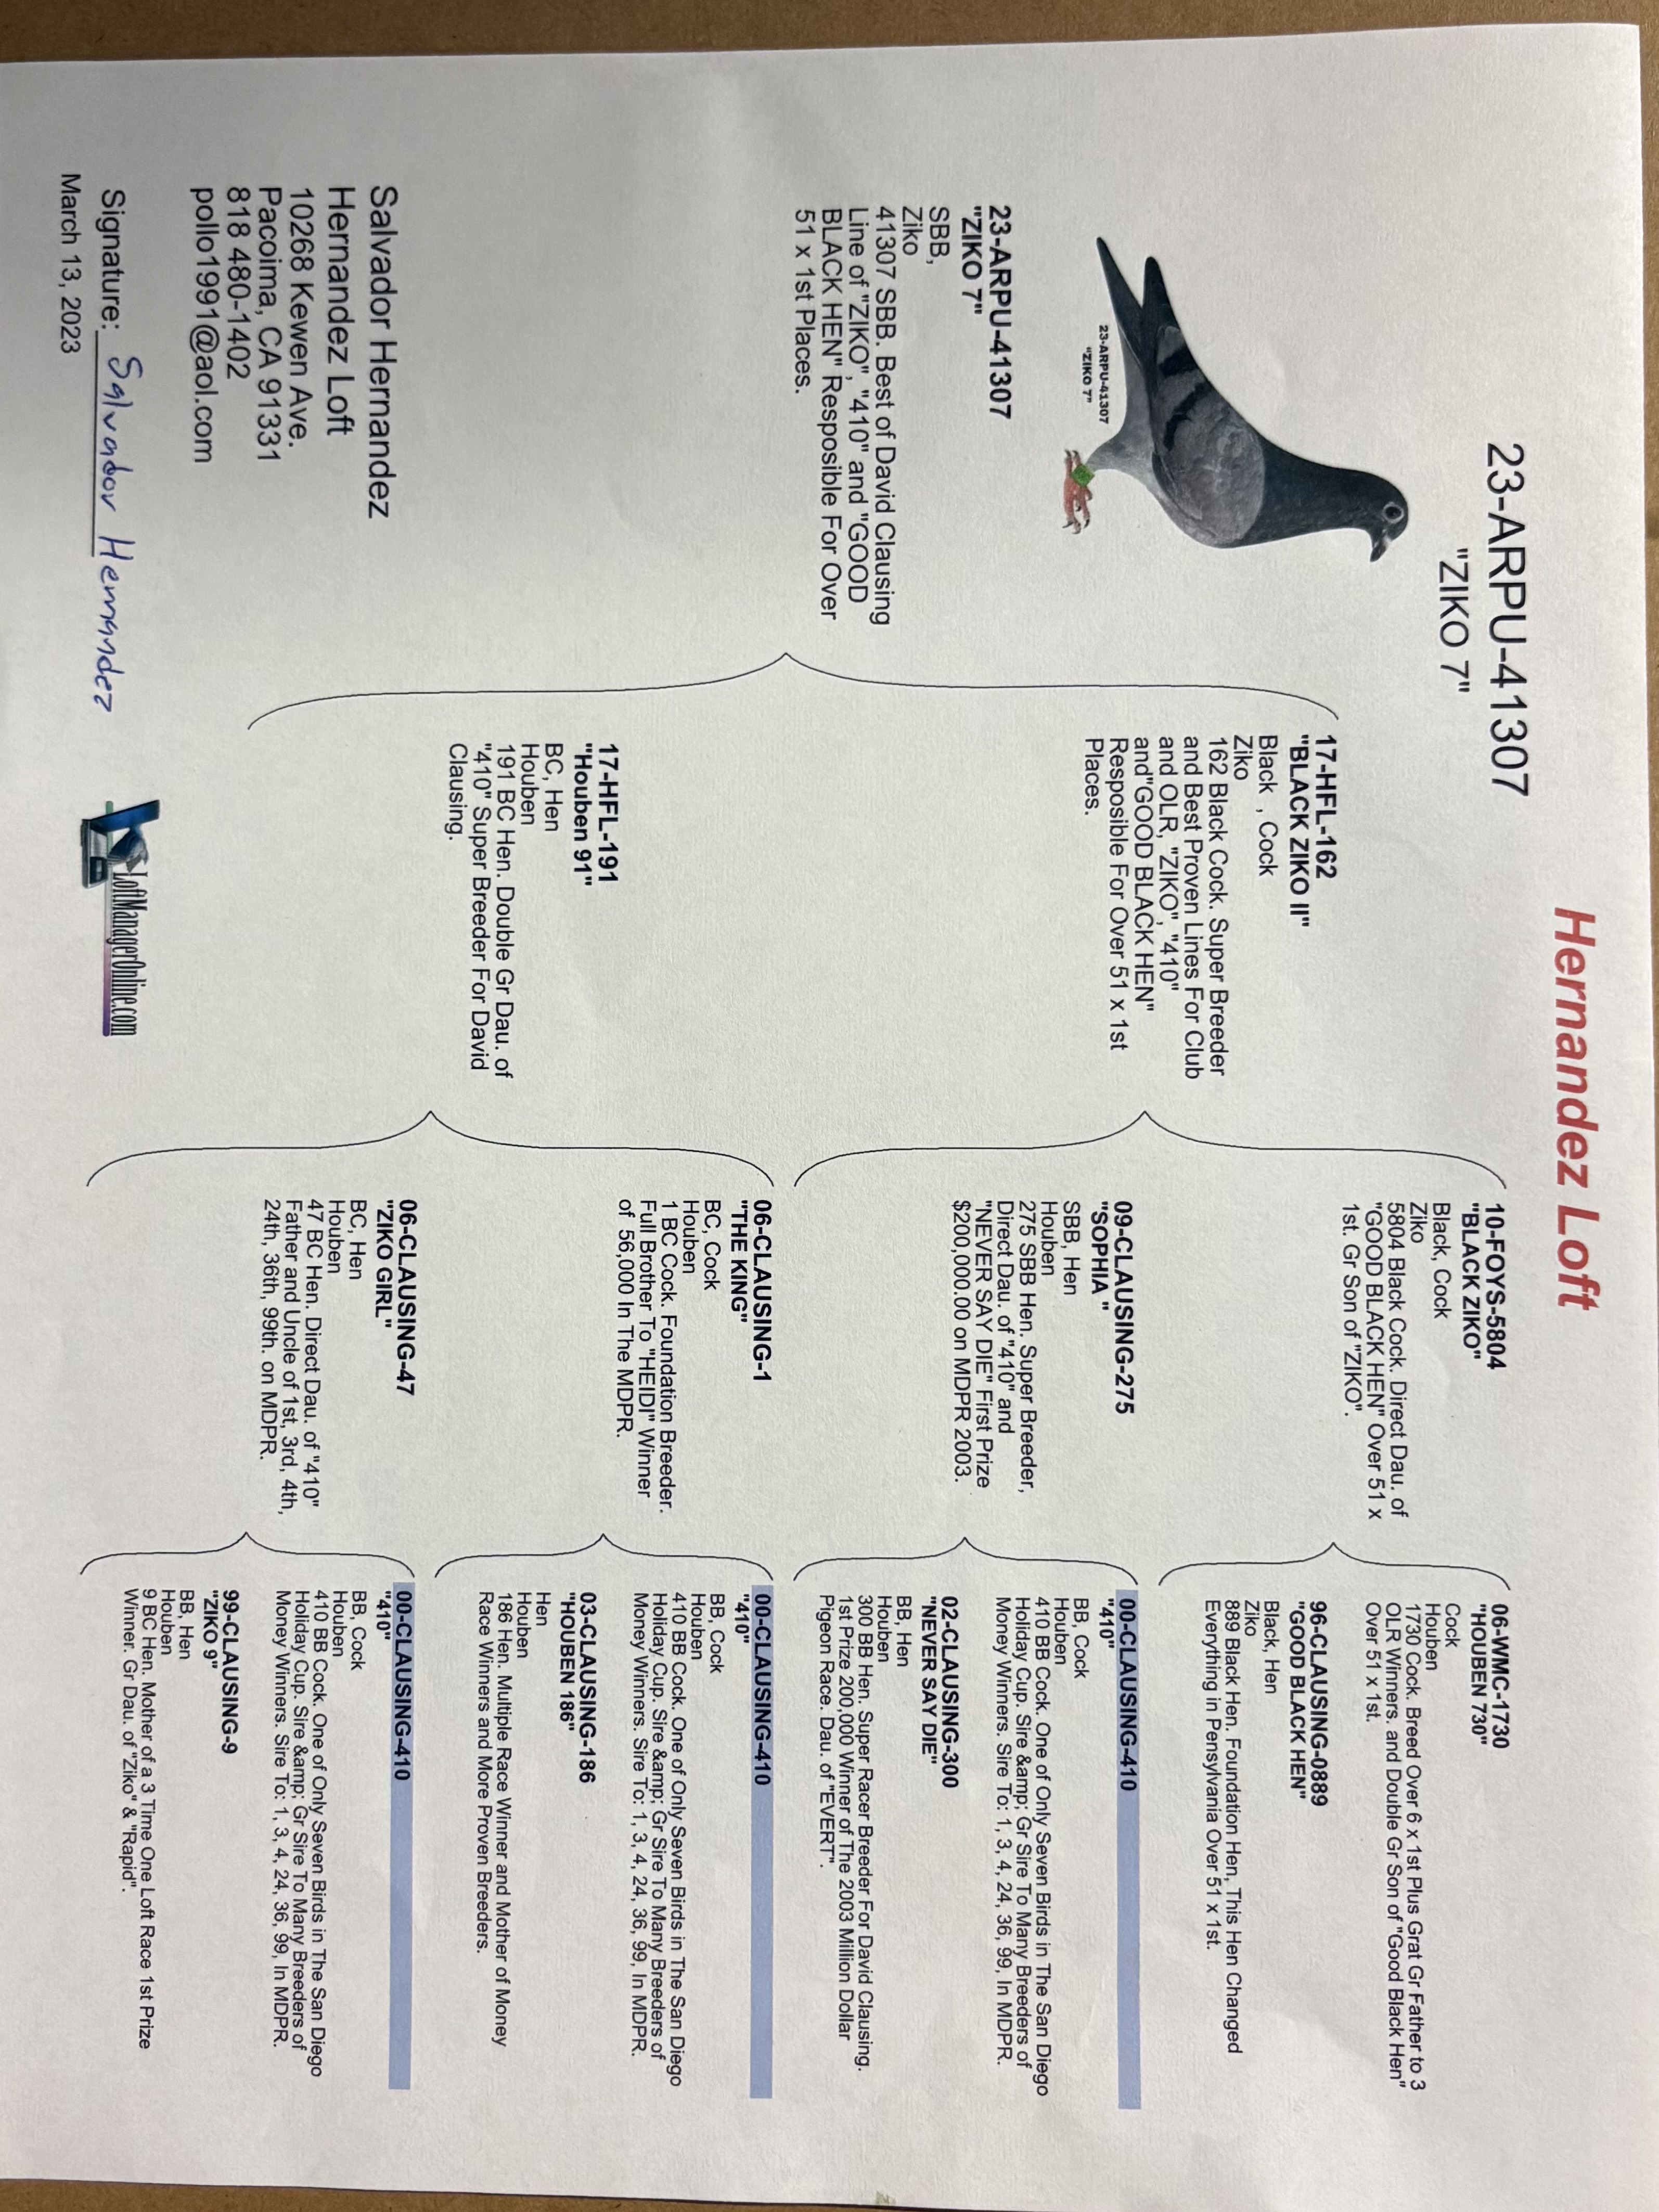 Hernandez Loft
23-ARPU-41307
"ZIKO 7"
23-ARPU-41307
"ZIKO 7"
23-ARPU-41307
"ZIKO 7"
SBB,
Ziko
41307 SBB. Best of David Clausing
Line of "ZIKO", "410" and "GOOD
BLACK HEN" Resposible For Over
51 x 1st Places.
Salvador Hernandez
Hernandez Loft
10268 Kewen Ave.
Pacoima, CA 91331
818 480-1402
pollo1991@aol.com
Signature: Salvador Hernandez
March 13, 2023
LoftManagerOnline.com
17-HFL-162
"BLACK ZIKO II"
Black , Cock
Ziko
162 Black Cock. Super Breeder
and Best Proven Lines For Club
and OLR, "ZIKO", "410"
and"GOOD BLACK HEN"
Resposible For Over 51 x 1st
Places.
17-HFL-191
"Houben 91"
BC, Hen
Houben
191 BC Hen. Double Gr Dau. of
"410" Super Breeder For David
Clausing.
10-FOYS-5804
"BLACK ZIKO"
Black, Cock
Ziko
5804 Black Cock. Direct Dau. of
"GOOD BLACK HEN" Over 51 x
1st. Gr Son of "ZIKO".
09-CLAUSING-275
"SOPHIA "
SBB, Hen
Houben
275 SBB Hen. Super Breeder,
Direct Dau. of "410" and
"NEVER SAY DIE" First Prize
$200,000.00 on MDPR 2003.
06-CLAUSING-1
"THE KING"
BC, Cock
Houben
1 BC Cock. Foundation Breeder.
Full Brother To "HEIDI" Winner
of 56,000 In The MDPR.
06-CLAUSING-47
"ZIKO GIRL"
BC, Hen
Houben
47 BC Hen. Direct Dau. of "410"
Father and Uncle of 1st, 3rd, 4th,
24th, 36th, 99th. on MDPR.
06-WMC-1730
"HOUBEN 730"
Cock
Houben
1730 Cock. Breed Over 6 x 1st Plus Grat Gr Father to 3
OLR Winners. and Double Gr Son of "Good Black Hen"
Over 51 x 1st.
96-CLAUSING-0889
"GOOD BLACK HEN"
Black, Hen
Ziko
889 Black Hen. Foundation Hen, This Hen Changed
Everything in Pensylvania Over 51 x 1st.
00-CLAUSING-410
"410"
BB, Cock
Houben
410 BB Cock. One of Only Seven Birds in The San Diego
Holiday Cup. Sire &amp; Gr Sire To Many Breeders of
Money Winners. Sire To: 1, 3, 4, 24, 36, 99, In MDPR.
02-CLAUSING-300
"NEVER SAY DIE"
BB, Hen
Houben
300 BB Hen. Super Racer Breeder For David Clausing.
1st Prize 200,000 Winner of The 2003 Million Dollar
Pigeon Race. Dau. of "EVERT".
00-CLAUSING-410
"410"
BB, Cock
Houben
410 BB Cock. One of Only Seven Birds in The San Diego
Holiday Cup. Sire &amp; Gr Sire To Many Breeders of
Money Winners. Sire To: 1, 3, 4, 24, 36, 99, In MDPR.
03-CLAUSING-186
"HOUBEN 186"
Hen
Houben
186 Hen. Multiple Race Winner and Mother of Money
Race Winners and More Proven Breeders.
00-CLAUSING-410
"410"
BB, Cock
Houben
410 BB Cock. One of Only Seven Birds in The San Diego
Holiday Cup. Sire &amp; Gr Sire To Many Breeders of
Money Winners. Sire To: 1, 3, 4, 24, 36, 99, In MDPR.
99-CLAUSING-9
"ZIKO 9"
BB, Hen
Houben
9 BC Hen. Mother of a 3 Time One Loft Race 1st Prize
Winner. Gr Dau. of "Ziko" & "Rapid".